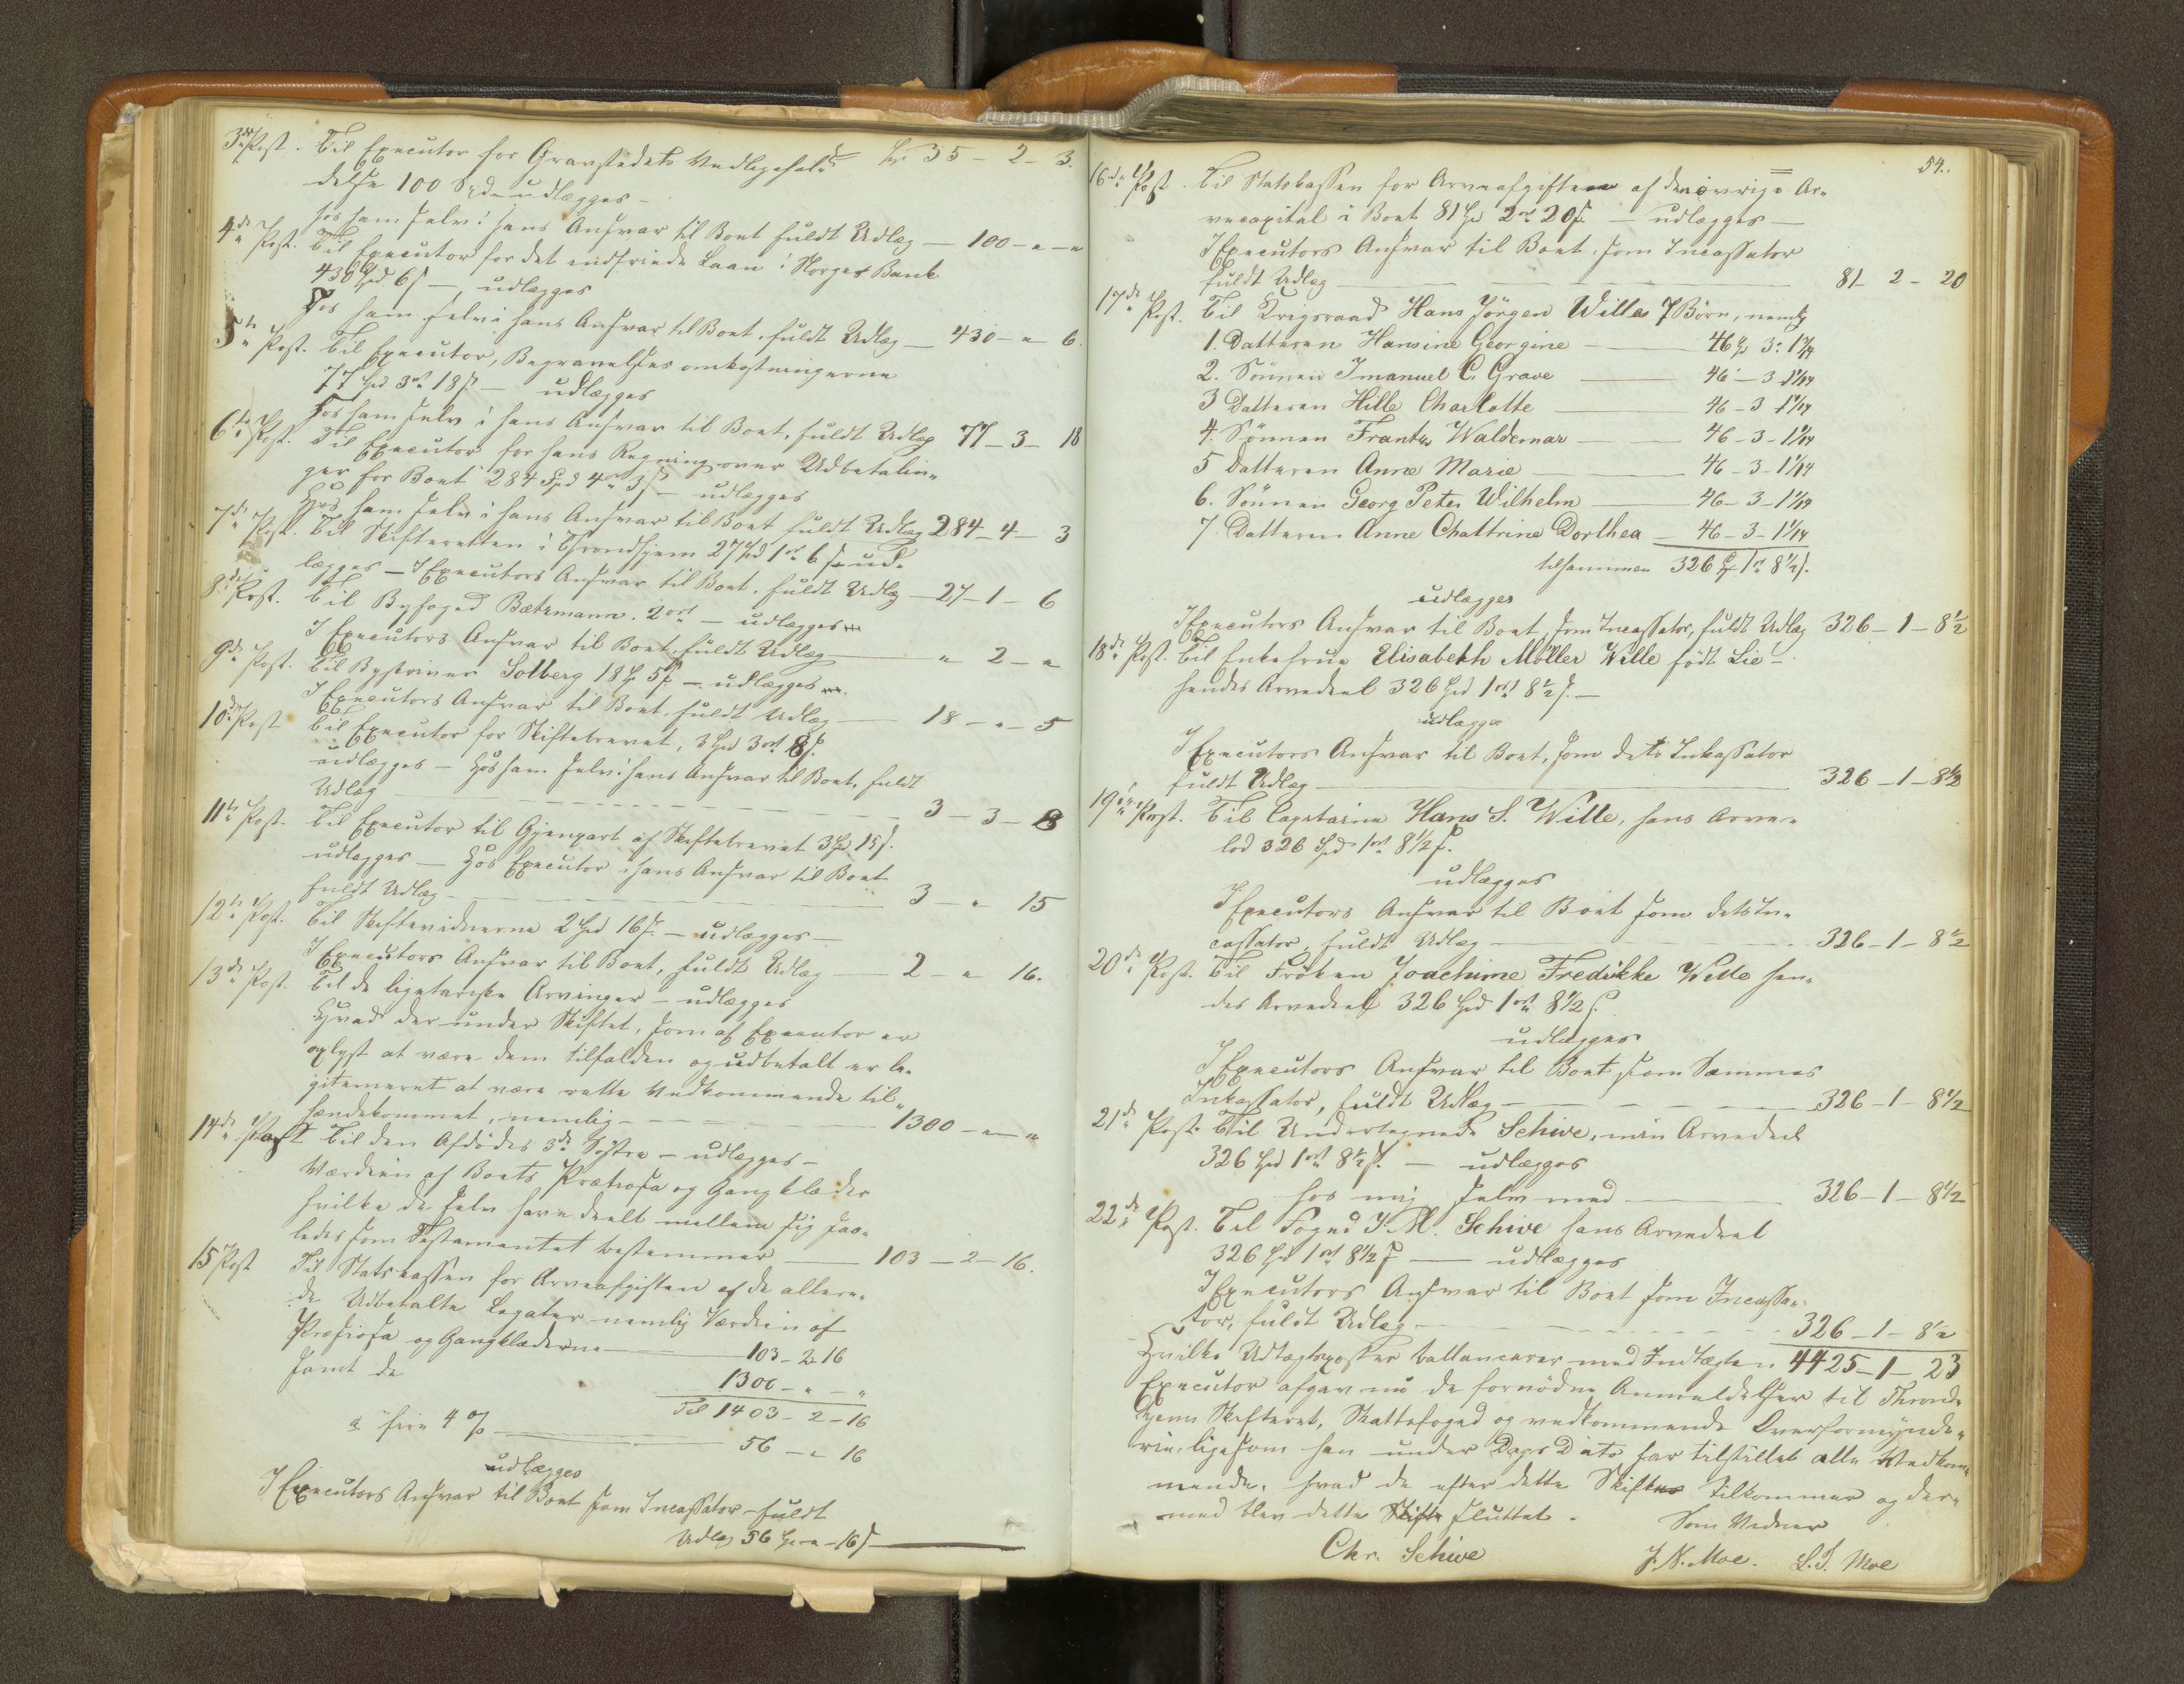 3die Post. Til Executor for Gravstedets Vedligehol- 35 - 2 - 3.
delse 100 Spd. udlægges -
hos ham selv i hans Ansvar til Boet fuldt Udlæg - 100 - " - "
4de Post. Til Executor for det indfriede Laan i Norges Bank
430 Spd 6 s - udlægges
Hos ham selv i hans Ansvar til Boet, fuldt Udlæg - 430 - " - 6.
5te Post. Til Executor, Begravelses omkostningerne
77 Spd 3 ort 18 s - udlægges
Hos ham selv i hans Ansvar til Boet, fuldt Udlæg 77 - 3 - 18
6te Post. Til Executor for hans Regning over Udbetalin-
ger for Boet 284 Spd 4 ort 3 s - udlægges
Hos ham selv i hans Ansvar til Boet fuldt Udlæg 284 - 4 - 3
7de Post. Til Skifteretten i Throndhjem 27 Spd 1 ort 6 s - ud-
lægges - I Executors Ansvar til Boet, fuldt Udlæg - 27 - 1 - 6
8de Post. Til Byfoged Bætzmann. 2 ort - udlægges
I Executors Ansvar til Boet, fuldt Udlæg - " 2 - "
9de Post. Til Byskriver Solberg 18 Sp 5 s - udlægges
I Executors Ansvar til Boet, fuldt Udlæg - 18 - " - 5
10de Post Til Executor for Skiftebrevet, 3 Spd 3 ort 8 s
udlægges - Hos ham selv i hans Ansvar til Boet, fuldt
Udlæg - 3 - 3 - 8
11te Post. Til Executor til Gjenpart af Skiftebrevet 3 Spd 15 s.
udlægges - Hos Executor i hans Ansvar til Boet
fuldt Udlæg - 3 - " 15
12te Post. Til Skiftevidnerne 2 Spd 16 s. - udlægges -
I Executors Ansvar til Boet, fuldt Udlæg - 2 - " 16.
13de Post. Til de ligatariske Arvinger - udlægges
Hvad der under Skiftet, som af Executor er
oplyst at være dem tilfalden og udbetalt er le-
gitimeret at være rette Vedkommende til-
hændekommet, nemlig - 1300 - " - "
14de Post Til den Afdødes 3de Søstre - udlægges -
Værdien af Boets Prætiosa og Gangklæder
hvilke de selv have deelt mellem sig saa-
ledes som Testamentet bestemmer - 103 - 2 - 16.
15 Post Til Statskassen for Arveafgiften af de allere-
de Udbetalte Legater nemlig Værdien af
Præsiosa og Gangklæderne - 103 - 2 16
samt de 1300 - " - "
Til 1403 - 2 - 16
a fire 4 % - 56 - " 16
udlægges
I Executors Ansvar til Boet som Incassator - fuldt
Udlæg 56 Sp - " - 16 s
54.
16de Post. Til Statskassen for Arveafgiften af den øvrige Ar-
vecapital i Boet 81 Spd 2 ort 20 s. - udlægges -
I Executors Ansvar til Boet, som Incassator
fuldt Udlæg - 81 - 2 - 20
17de Post. Til Krigsraad Hans Jörgen Willes 7 Børn, nemlig
1. Datteren Hansine Georgine - 46 Spd 3 - 1 1/14
2. Sønnen Imanuel C. Grave - 46 - 3 - 1 1/14
3 Datteren Hille Charlotte - 46 - 3 1 1/14
4. Sønnen Frantz Waldemar - 46 - 3 - 1 1/14
5 Datteren Anne Marie - 46 - 3 - 1 1/14
6. Sønnen Georg Peter Wilhelm - 46 - 3 - 1 1/14
7. Datteren Anne Chattrine Dorthea - 46 - 3 - 1 1/14
tilsammen 326 Sp 1 ort 8 1/2 s.
udlægges
I Executors Ansvar til Boet, som Incassator, fuldt Udlæg 326 - 1 - 8 1/2
18de Post. Til Enkefrue Elisabeth Møller Wille født Lie -
hendes Arvedeel 326 Spd 1 ort 8 1/2 s. -
udlægges
I Executors Ansvar til Boet, som dets Inkassator
fuldt Udlæg - 326 - 1 - 8 1/2
19de Post. Til Captaine Hans S. Wille, hans Arve-
lod 326 Spd 1 ort 8 1/2 s.
udlægges
I Executors Ansvar til Boet som dets In-
cassator, fuldt Udlæg - 326 - 1 - 8 1/2
20de Post. Til Frøken Joachime Fredrikke Wille hen-
des Arvedeel 326 Spd 1 ort 8 1/2 s.
udlægges
I Executors Ansvar til Boet, som Sammes
Inkassator, fuldt Udlæg - 326 - 1 - 8 1/2
21de Post. Til Undertegnede Schive, min Arvedeel
326 Spd 1 ort 8 1/2 s. - udlægges
hos mig selv med - 326 - 1 - 8 1/2
22de Post. Til Foged J. M. Schive hans Arvedeel
326 Spd 1 ort 8 1/2 s - udlægges
I Executors Ansvar til Boet som Incassa-
tor, fuldt Udlæg - 326 - 1 - 8 1/2
Hvilke Udlægsposter ballancerer med Indtægten 4425 - 1 - 23
Executor afgav nu de fornødne Anmeldelser til Thrond-
hjems Skifteret, Stattefoged og vedkommende Overformynde-
rie, ligesom han under Dags Dato har tilstillet alle Vedkom-
mende, hvad de efter dette Skifte tilkommer og der-
med blev dette Skifte sluttet. Som Vidner
Chr. Schive J. N. Moe. L. J. Moe